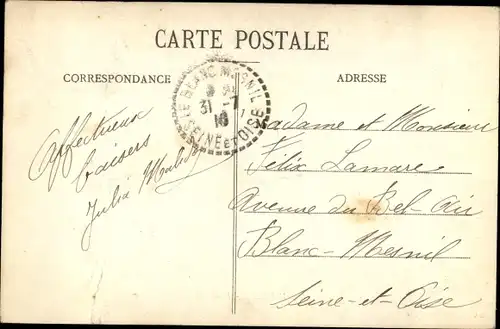 CARTE POSTALE
CORRESPONDANCE
ADRESSE
LE BLANC MESNIL
31 - 1
SEINE ET OISE
Affectueux
baisers
Julia
Madame et Monsieur
Félix Lamare
Avenue du Bel-Air
Blanc-Mesnil
Seine-et-Oise